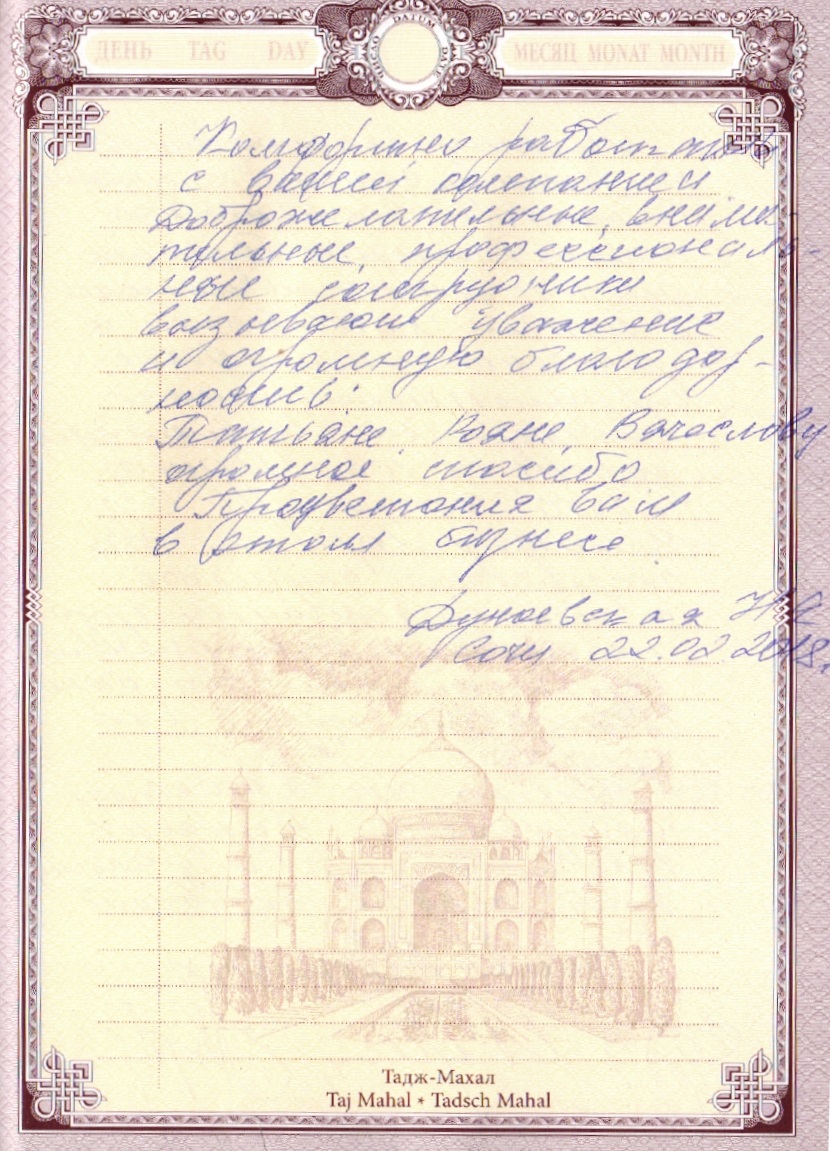 ДЕНЬ TAG DAY DATUM DATE МЕСЯЦ MONAT MONTH
Комфортно работать
с вашей компанией
Доброжелательные, внима-
тельные, профессиональ-
ные сотрудники
вызывают уважение
и огромную благодар-
ность.
Татьяне, Вячеславу
огромное спасибо
Процветания Вам
в этом бизнесе.
Дунаевская
Сочи 22.02 2018г
Тадж-Махал
Taj Mahal * Tadsch Mahal